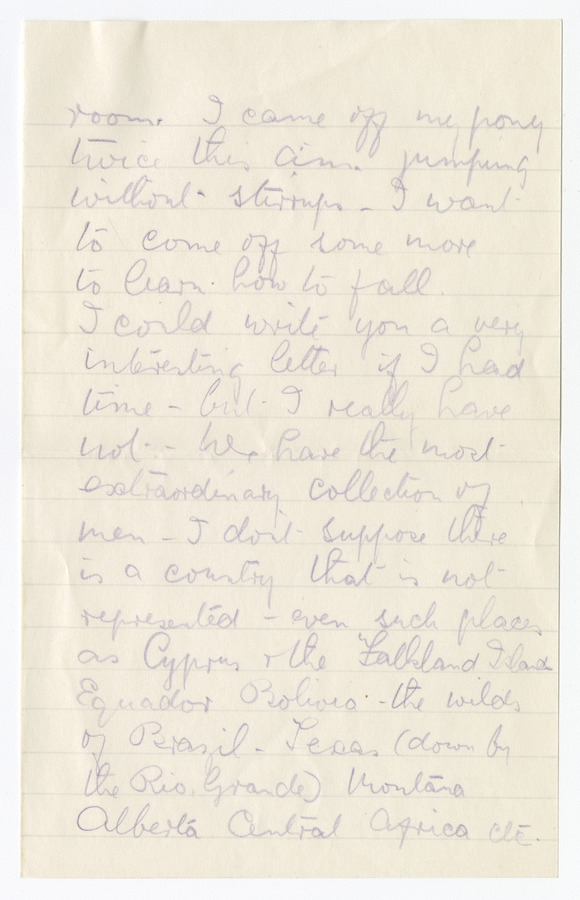 room. I came off my pony
twice this a.m. jumping
without stirrups - I want
to come off some more
to learn how to fall.
I could write you a very
interesting letter if I had
time - but I really have
not - We have the most
extraordinary collection of
men - I don't suppose there
is a country that is not
represented - even such places
as Cyprus & the Falkland Island
Equador Bolivia - the wilds
of Brazil - Texas (down by
the Rio Grande) Montana
Alberta Central Africa etc.